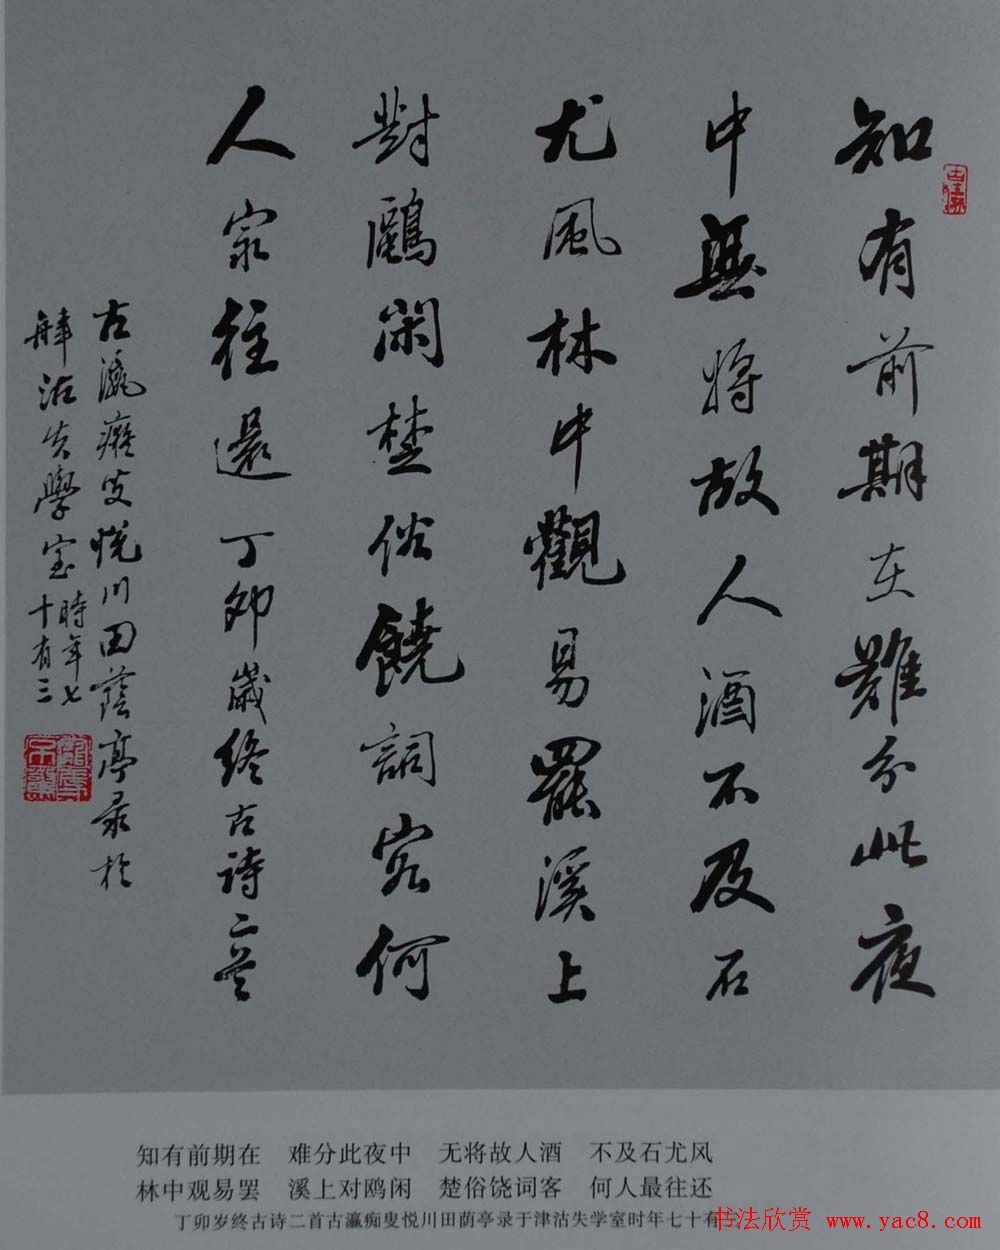 知有前期在難分此夜
中無將故人酒不及石
尤風林中觀易罷溪上
對鷗閑楚俗饒詞客何
人最往還丁卯歲終古詩二首
古瀛癡叟悦川田蔭亭录於
津沽失學室時年七
十有三
知有前期在 难分此夜中 无将故人酒 不及石尤风
林中观易罢 溪上对鸥闲 楚俗饶词客 何人最往还
丁卯岁终古诗二首古瀛痴叟悦川田荫亭录于津沽失学室时年七十有
书法欣赏 www.yac8.com